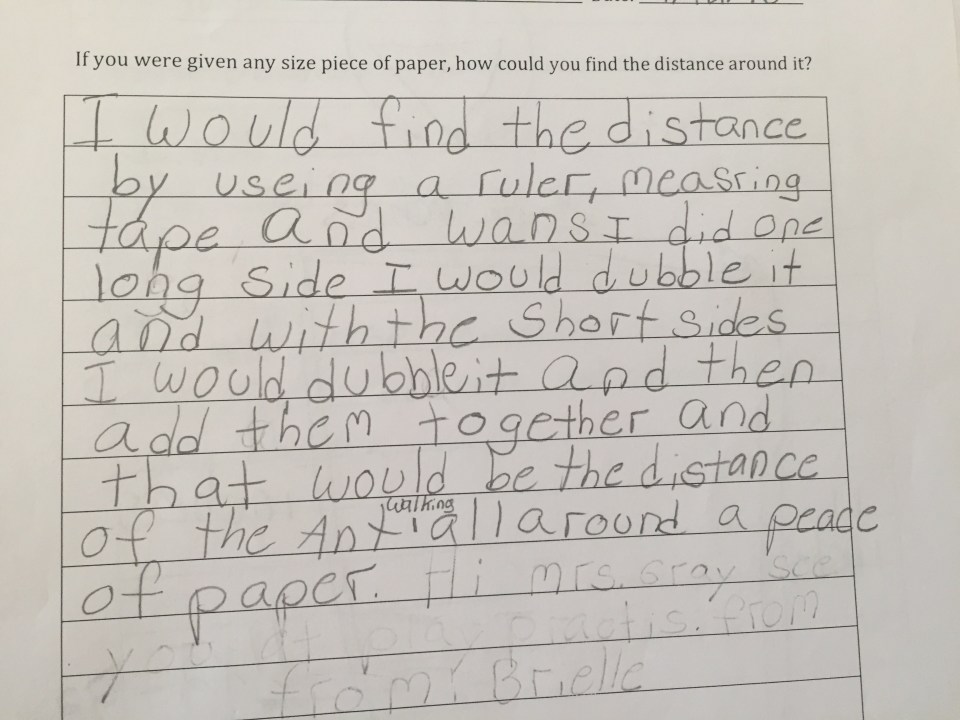 If you were given any size piece of paper, how could you find the distance around it?
I would find the distance
by useing a ruler, measring
tape and wans I did one
long side I would dubble it
and with the short sides
I would dubble it and then
add them together and
that would be the distance
walking
of the Ant all around a peace
of paper. Hi mrs. Gray see
you at play practis. from
from: Brielle